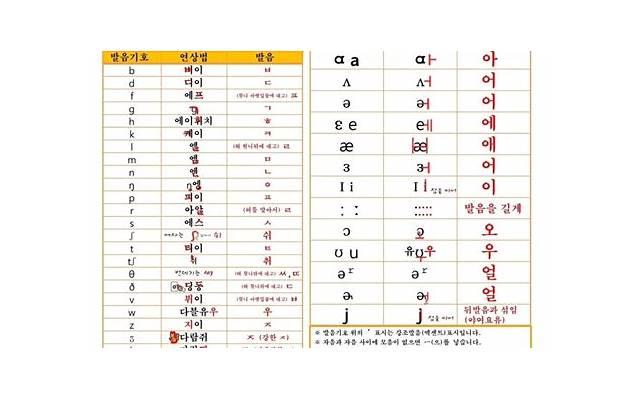 발음기호 연상법 발음
b 삐이 ㅂ
d 디이 ㄷ
f 에프 ㅍ
g ㄱ
h 에이취 ㅎ
k 케이 ㅋ
l 엘 ㄹ
m 엠 ㅁ
n 엔 ㄴ
ŋ 엥 ㅇ
p 피이 ㅍ
r 아알 (혀를 말아서) ㄹ
s 에스 ㅅ
ʃ 쉬
t 티이 ㅌ
tʃ 취 취
θ 번데기는 ㅆ, ㄸ
ð 딩동 ㄷ
v 뷔이 ㅂ
w 다블유우 우
z 지이 ㅈ
다람쥐 ㅈ (강한 ㅈ)
ɑ a ɑㅏ 아
ʌ ʌㅓ 어
ə əㅓ 어
ɛ e eㅔ 에
æ æ 애
ɜ ɜㅓ 어
I i i 이
: : 발음을 길게
ɔ ɔ 오
ʊ u 유우 우
ər ər 얼
ɚ ɚ 얼
j j 뒤발음과 섞임
(야여요유)
※ 발음기호 위의 ' 표시는 강조발음(액센트)표시입니다.
※ 자음과 자음 사이에 모음이 없으면 ㅡ(으)를 넣습니다.